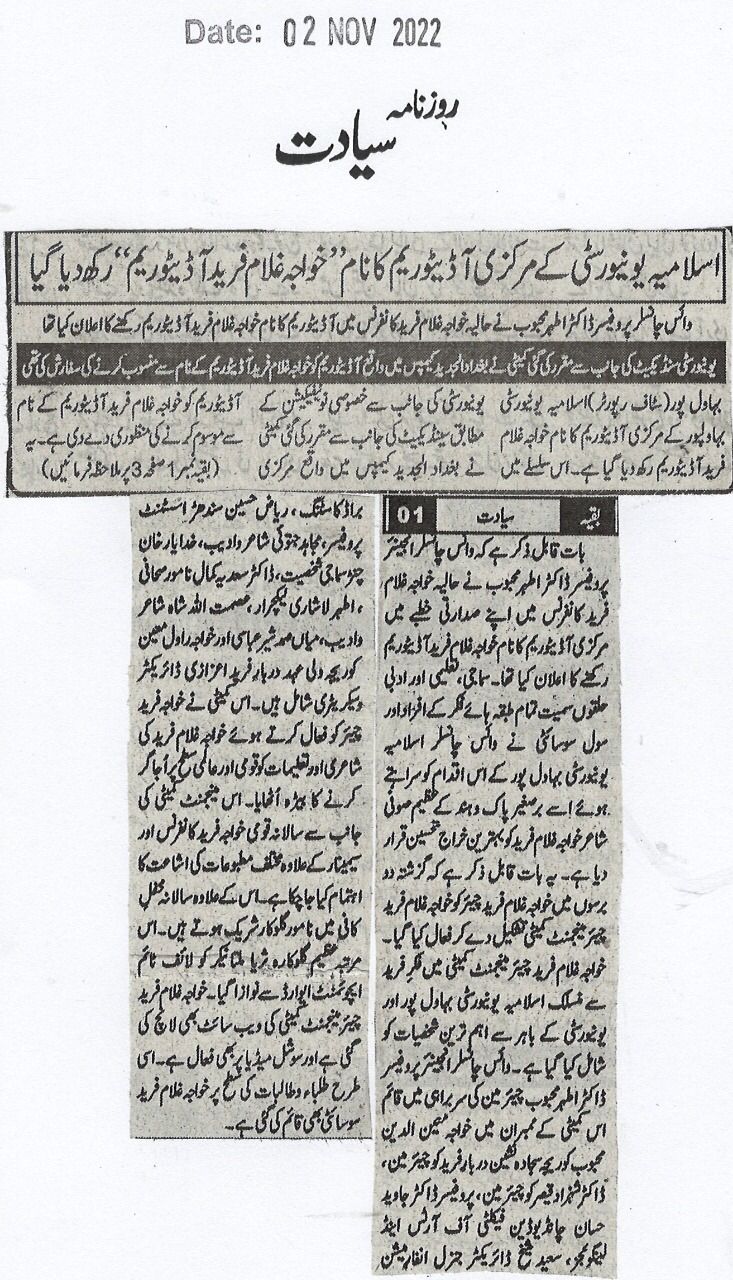 Date: 02 NOV 2022
روزنامہ
سیادت
اسلامیہ یونیورسٹی کے مرکزی آڈیٹوریم کا نام ’’خواجہ غلام فرید آڈیٹوریم‘‘ رکھ دیا گیا
وائس چانسلر پروفیسر ڈاکٹر اطہر محبوب نے حالیہ خواجہ غلام فرید کانفرنس میں آڈیٹوریم کا نام خواجہ غلام فرید آڈیٹوریم رکھنے کا اعلان کیا تھا
یونیورسٹی سنڈیکیٹ کی جانب سے مقرر کی گئی کمیٹی نے بغداد الجدید کیمپس میں واقع آڈیٹوریم کو خواجہ غلام فرید آڈیٹوریم کے نام سے منسوب کرنے کی سفارش کی تھی
بہاول پور (سٹاف رپورٹر) اسلامیہ یونیورسٹی
بہاولپور کے مرکزی آڈیٹوریم کا نام خواجہ غلام
فرید آڈیٹوریم رکھ دیا گیا ہے۔ اس سلسلے میں
یونیورسٹی کی جانب سے خصوصی نوٹیفکیشن کے
مطابق سینڈیکیٹ کی جانب سے مقرر کی گئی کمیٹی
نے بغداد الجدید کیمپس میں واقع مرکزی
آڈیٹوریم کو خواجہ غلام فرید آڈیٹوریم کے نام
سے موسوم کرنے کی منظوری دے دی ہے۔ یہ
(بقیہ نمبر 1 صفحہ 3 پر ملاحظہ فرمائیں)
بقیہ سیادت 01
بات قابل ذکر ہے کہ وائس چانسلر انجینئر
پروفیسر ڈاکٹر اطہر محبوب نے حالیہ خواجہ غلام
فرید کانفرنس میں اپنے صدارتی خطبے میں
مرکزی آڈیٹوریم کا نام خواجہ غلام فرید آڈیٹوریم
رکھنے کا اعلان کیا تھا۔ سماجی، تعلیمی اور ادبی
حلقوں سمیت تمام طبقہ ہائے فکر کے افراد اور
سول سوسائٹی نے وائس چانسلر اسلامیہ
یونیورسٹی بہاول پور کے اس اقدام کو سراہتے
ہوئے اسے برصغیر پاک و ہند کے عظیم صوفی
شاعر خواجہ غلام فرید کو بہترین خراج تحسین قرار
دیا ہے۔ یہ بات قابل ذکر ہے کہ گزشتہ دو
برسوں میں خواجہ غلام فرید چیئر کو خواجہ غلام فرید
چیئر مینجمنٹ کمیٹی تشکیل دے کر فعال کیا گیا۔
خواجہ غلام فرید چیئر مینجمنٹ کمیٹی میں فکر فرید
سے منسلک اسلامیہ یونیورسٹی بہاول پور اور
یونیورسٹی کے باہر سے اہم ترین شخصیات کو
شامل کیا گیا ہے۔ وائس چانسلر انجینئر پروفیسر
ڈاکٹر اطہر محبوب چیئر مین کی سربراہی میں قائم
اس کمیٹی کے ممبران میں خواجہ معین الدین
محبوب کوریجہ سجادہ نشین دربار فرید کو چیئر مین،
ڈاکٹر شہزاد قیصر کو چیئر مین، پروفیسر ڈاکٹر جاوید
حسان چانڈیو ڈین فیکلٹی آف آرٹس اینڈ
لینگوئجز، سعید شیخ ڈائریکٹر جنرل انفارمیشن
براڈ کاسٹنگ، ریاض حسین سندھڑ اسسٹنٹ
پروفیسر، مجاہد جتوئی شاعر و ادیب، خدا یار خان
چنڑ سماجی شخصیت، ڈاکٹر سعدیہ کمال نامور صحافی
، اطہر لاشاری لیکچرار، عصمت اللہ شاہ شاعر
و ادیب، میاں محمد شبر عباسی اور خواجہ راول معین
کوریجہ ولی عہد دربار فرید اعزازی ڈائریکٹر
و سیکریٹری شامل ہیں۔ اس کمیٹی نے خواجہ فرید
چیئر کو فعال کرتے ہوئے خواجہ غلام فرید کی
شاعری اور تعلیمات کو قومی اور عالمی سطح پر اجاگر
کرنے کا بیڑہ اٹھایا۔ اس مینجمنٹ کمیٹی کی
جانب سے سالانہ قومی خواجہ فرید کانفرنس اور
سیمینار کے علاوہ مختلف مطبوعات کی اشاعت کا
اہتمام کیا جا چکا ہے۔ اس کے علاوہ سالانہ محفل
کافی میں نامور گلوکار شریک ہوتے ہیں۔ اس
مرتبہ عظیم گلوکارہ ثریا ملتانیکر کو لائف ٹائم
اچیومنٹ ایوارڈ سے نوازا گیا۔ خواجہ غلام فرید
چیئر مینجمنٹ کمیٹی کی ویب سائٹ بھی لانچ کی
گئی ہے اور سوشل میڈیا پر بھی فعال ہے۔ اسی
طرح طلباء و طالبات کی سطح پر خواجہ غلام فرید
سوسائٹی بھی قائم کی گئی ہے۔